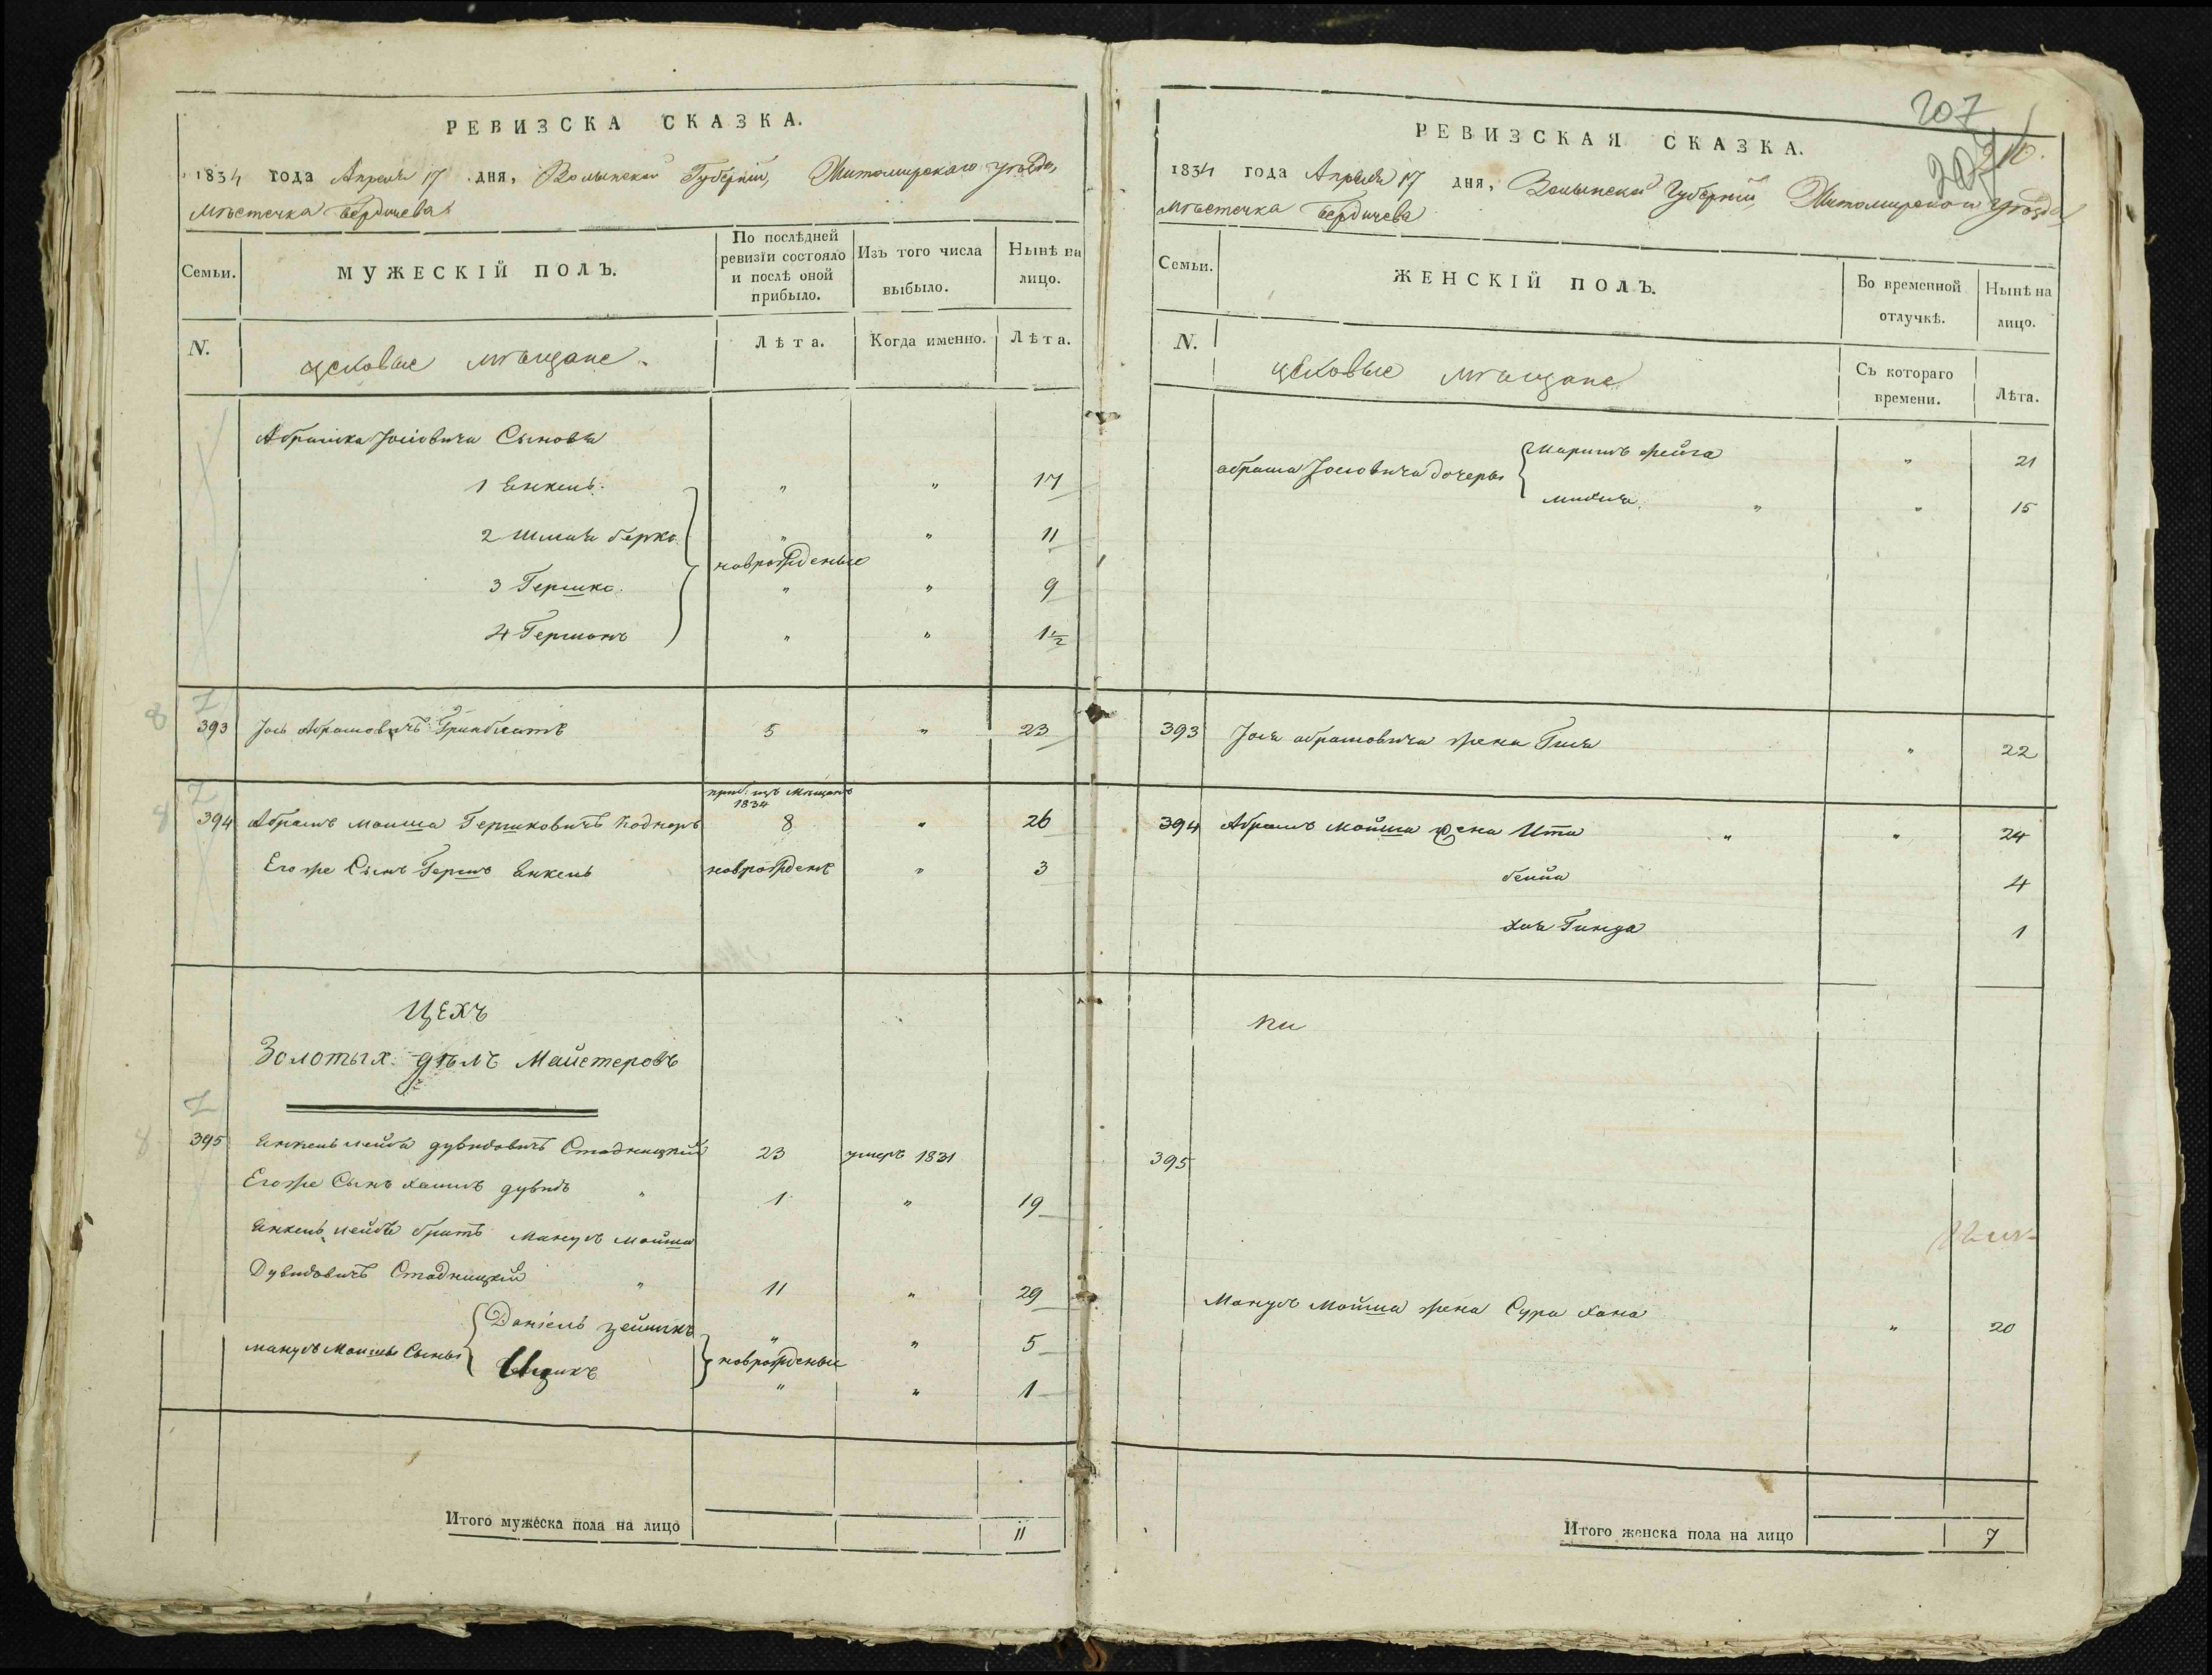 РЕВИЗСКА СКАЗКА.
1834 года Апреля 17 дня, Волынской Губерніи, Житомирскаго уѣзда,
мѣстечка Бердичева
Семьи.
МУЖЕСКІЙ ПОЛЪ.
По послѣдней ревизіи состояло и послѣ оной прибыло.
Изъ того числа выбыло.
Нынѣ на лицо.
N.
цеховые мѣщане
Лѣта.
Когда именно.
Лѣта.
Абрамка Іосіовича Сыновья
1 Янкель " " 17
2 Шмиля Берко " " 11
новрожденые
3 Гершко " " 9
4 Гершонъ " " 1½
393 Іось Абрамовичъ Гринблатъ 5 " 23
приб: изъ мѣщанъ
1834
394 Абрамъ Моиша Гершковичъ 8 " 26
Его же Сынъ Гершъ Янкель новрожденъ " 3
ЦЕХЪ
Золотыхъ дѣлъ Майстеровъ
395 Янкель лейба дувидовичъ Стадницкій 23 умеръ 1831
Его же Сынъ хаимъ дувидъ " 1 " 19
Янкель лейбы братъ Манусъ Моиша
Дувидовичъ Стадницкій " 11 " 29
Даніель зейликъ " " 5
Манусъ Моишы Сыны новрожденые
Ицикъ " " 1
Итого мужеска пола на лицо 11
207
РЕВИЗСКАЯ СКАЗКА.
1834 года Апреля 17 дня, Волынской Губерніи, Житомирскаго уѣзда
мѣстечка Бердичева
Семьи.
ЖЕНСКІЙ ПОЛЪ.
Во временной отлучкѣ.
Нынѣ на лицо.
N.
цеховые мѣщане
Съ котораго времени.
Лѣта.
Маримъ фейга " 21
абрама Іосіовича дочеры
" " 15
393 Іося абрамовича жена Гися " 22
394 Абрамъ Мойша жена Ита " " 24
бейла 4
хая Гинда 1
395
Манусъ Мойша жена Сура хана " 20
Итого женска пола на лицо 7